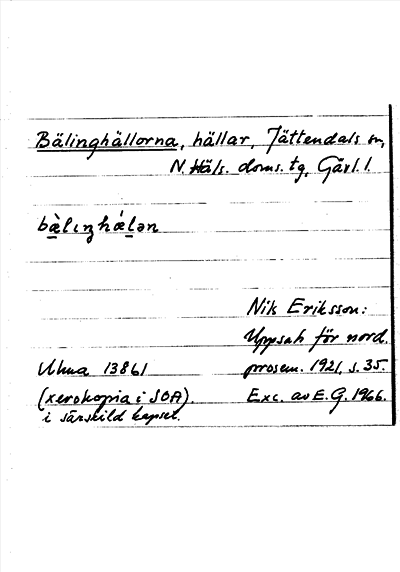 Bälinghällorna, hällar, Jättendals sn,
N. Häls. doms. tg, Gävl. l.
bὰlıŋhǽlən
Nik Eriksson:
Uppsats för nord.
Ulma 13861 prosem. 1921, s. 35.
(xerokopia i SOA). Exc. av E. G. 1966.
i särskild kapsel.